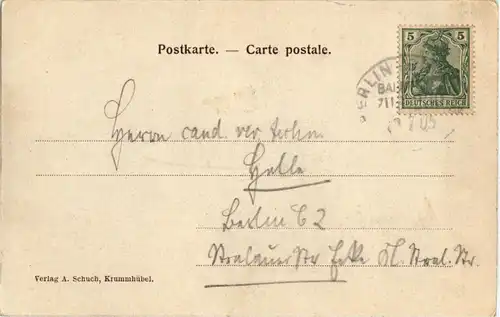 Postkarte. — Carte postale.
5 5
DEUTSCHES REICH
BERLIN
BA
711
Herrn cand. rer. techn.
Halle
Berlin C 2
Stralauer Str. Ecke Kl. Stral. Str.
Verlag A. Schuch, Krummhübel.